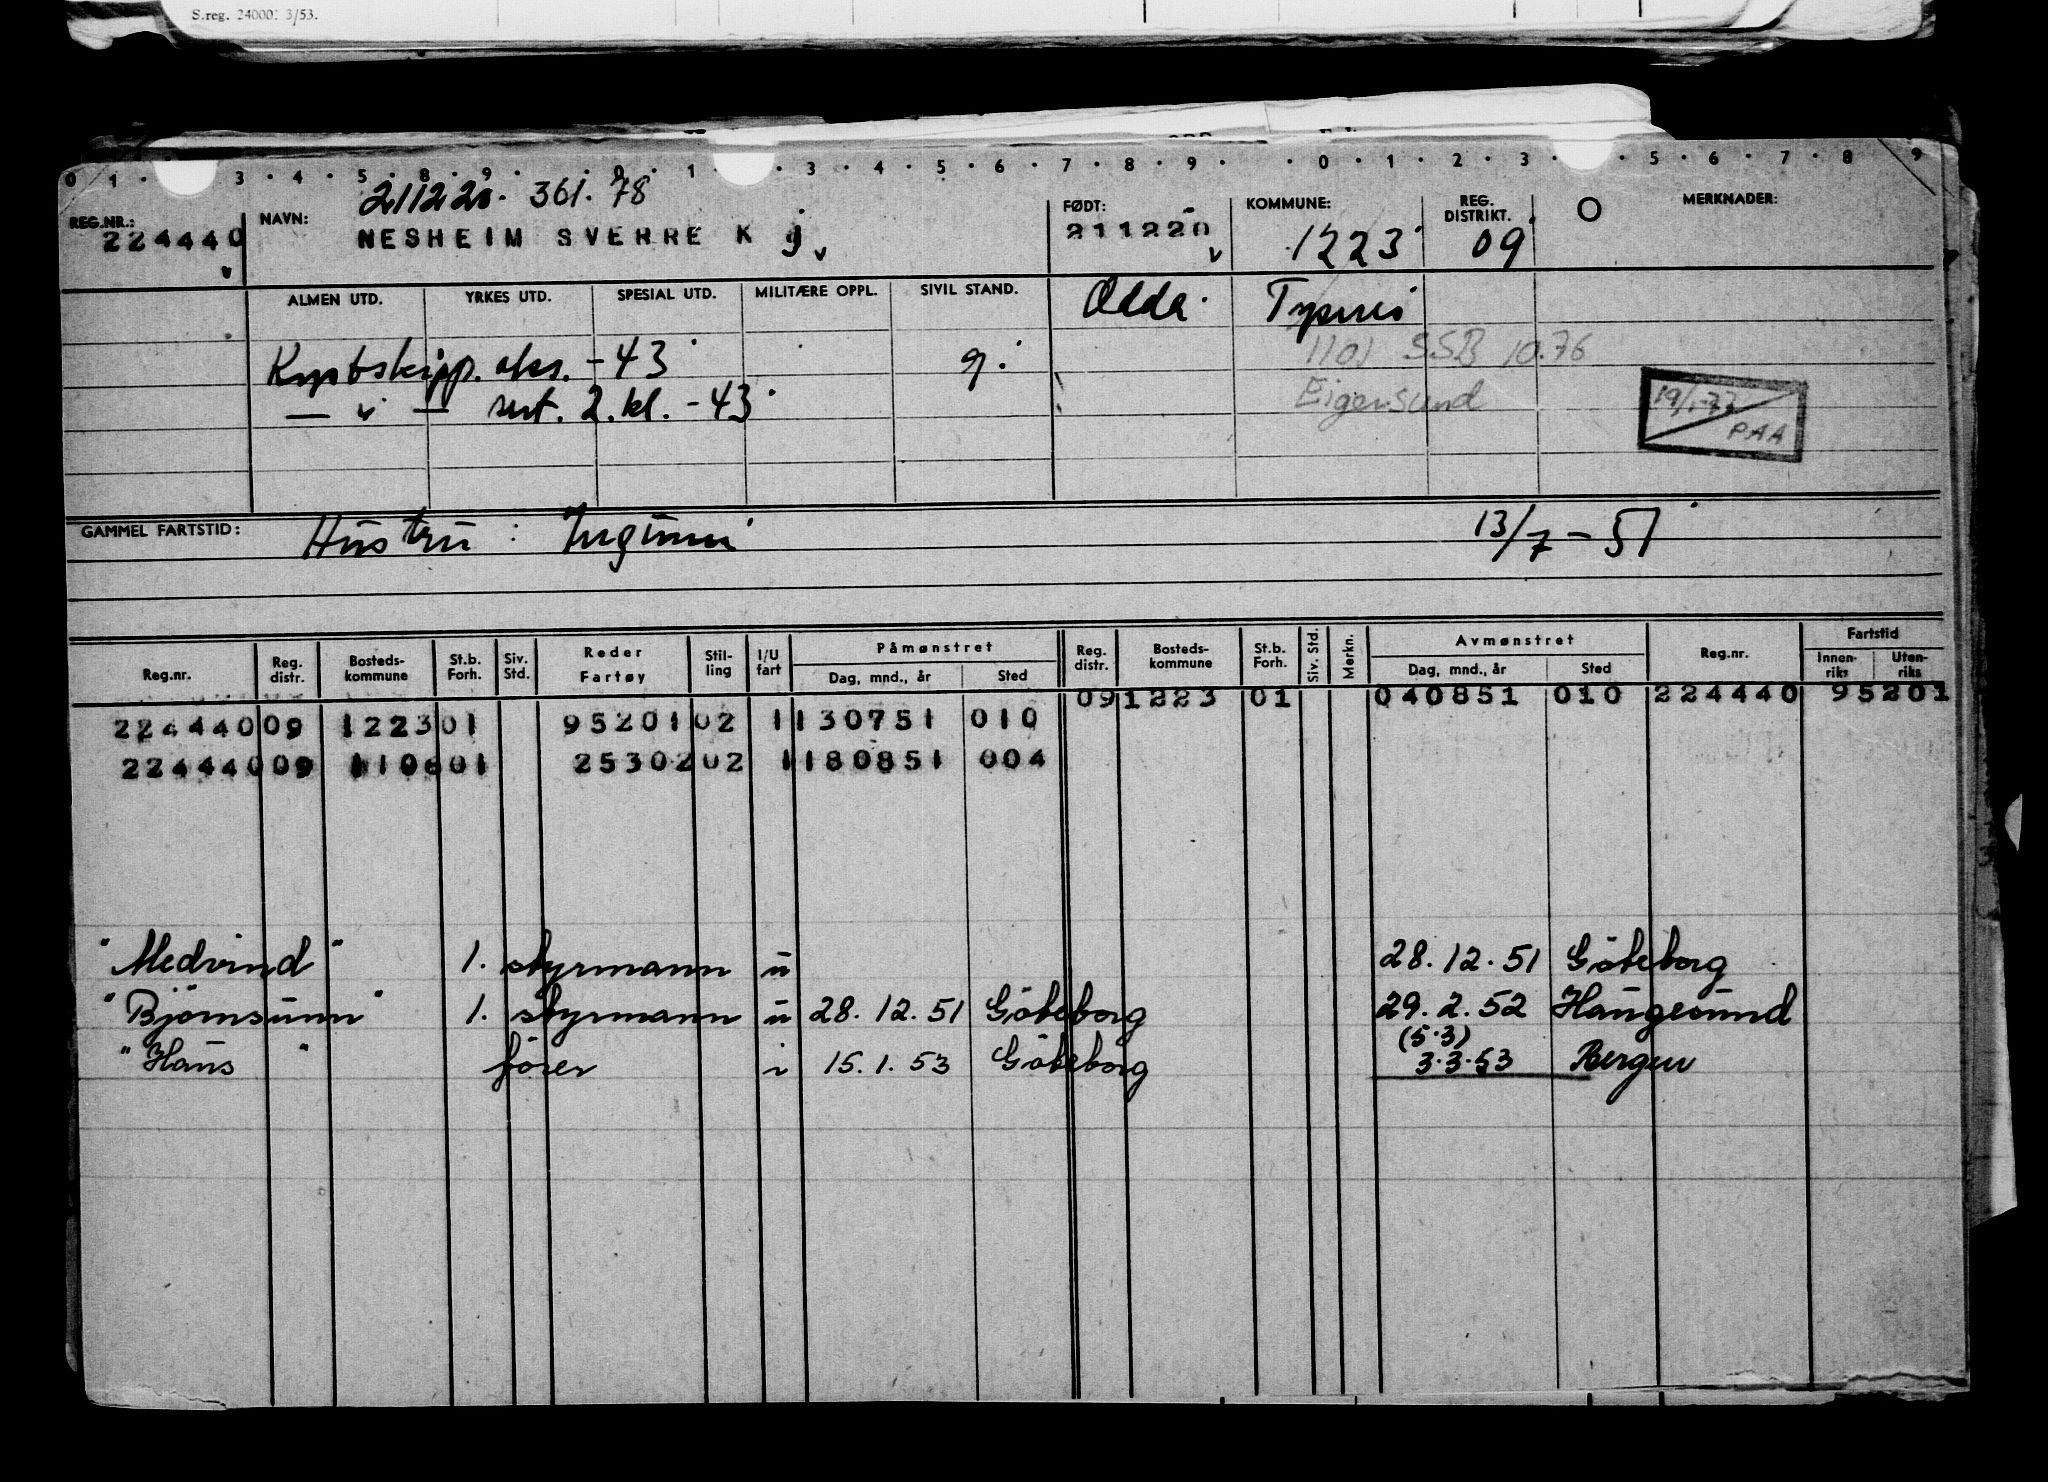 S.reg. 24000. 3/53.
0 1 · 3 · 4 · 5 · 8 · 9 · 0 · 1 · 3 · 4 · 5 · 6 · 7 · 8 · 9 · · 0 · 1 · 2 · 3 · 5 · 6 · 7 · 8 9
211220. 361.78
REG.NR.: NAVN: FØDT: KOMMUNE: REG. DISTRIKT. O MERKNADER:
224440 NESHEIM SVERRE K 211220 1223 09
ALMEN UTD. YRKES UTD. SPESIAL UTD. MILITÆRE OPPL. SIVIL STAND. Odda
1101 SSB 10.76
Kystskipp. eks. -43 g.
Eigersund
19/1-77
PAA
— " — sert. 2. kl. -43
GAMMEL FARTSTID: Hustru : 13/7-51
Reg.nr. Reg. distr. Bosteds-kommune St.b. Forh. Siv. Std. Reder Fartøy Stil-ling I/U fart Påmønstret Dag, mnd., år Sted Reg. distr. Bosteds-kommune St.b. Forh. Siv. Std. Merkn. Avmønstret Dag, mnd., år Sted Reg.nr. Fartstid Innen-riks Uten-riks
09 1223 01 040851 010 224440 95201
224440 09 1223 01 95201 02 1 130751 010
224440 09 01 25302 02 1 180851 004
"Medvind" 1. styrmann u 28.12.51 Göteborg
"Björnsunn" 1. styrmann u 28.12.51 Göteborg 29.2.52 Haugesund
(5.3)
"Haus" förer i 15.1.53 Göteborg 3.3.53 Bergen